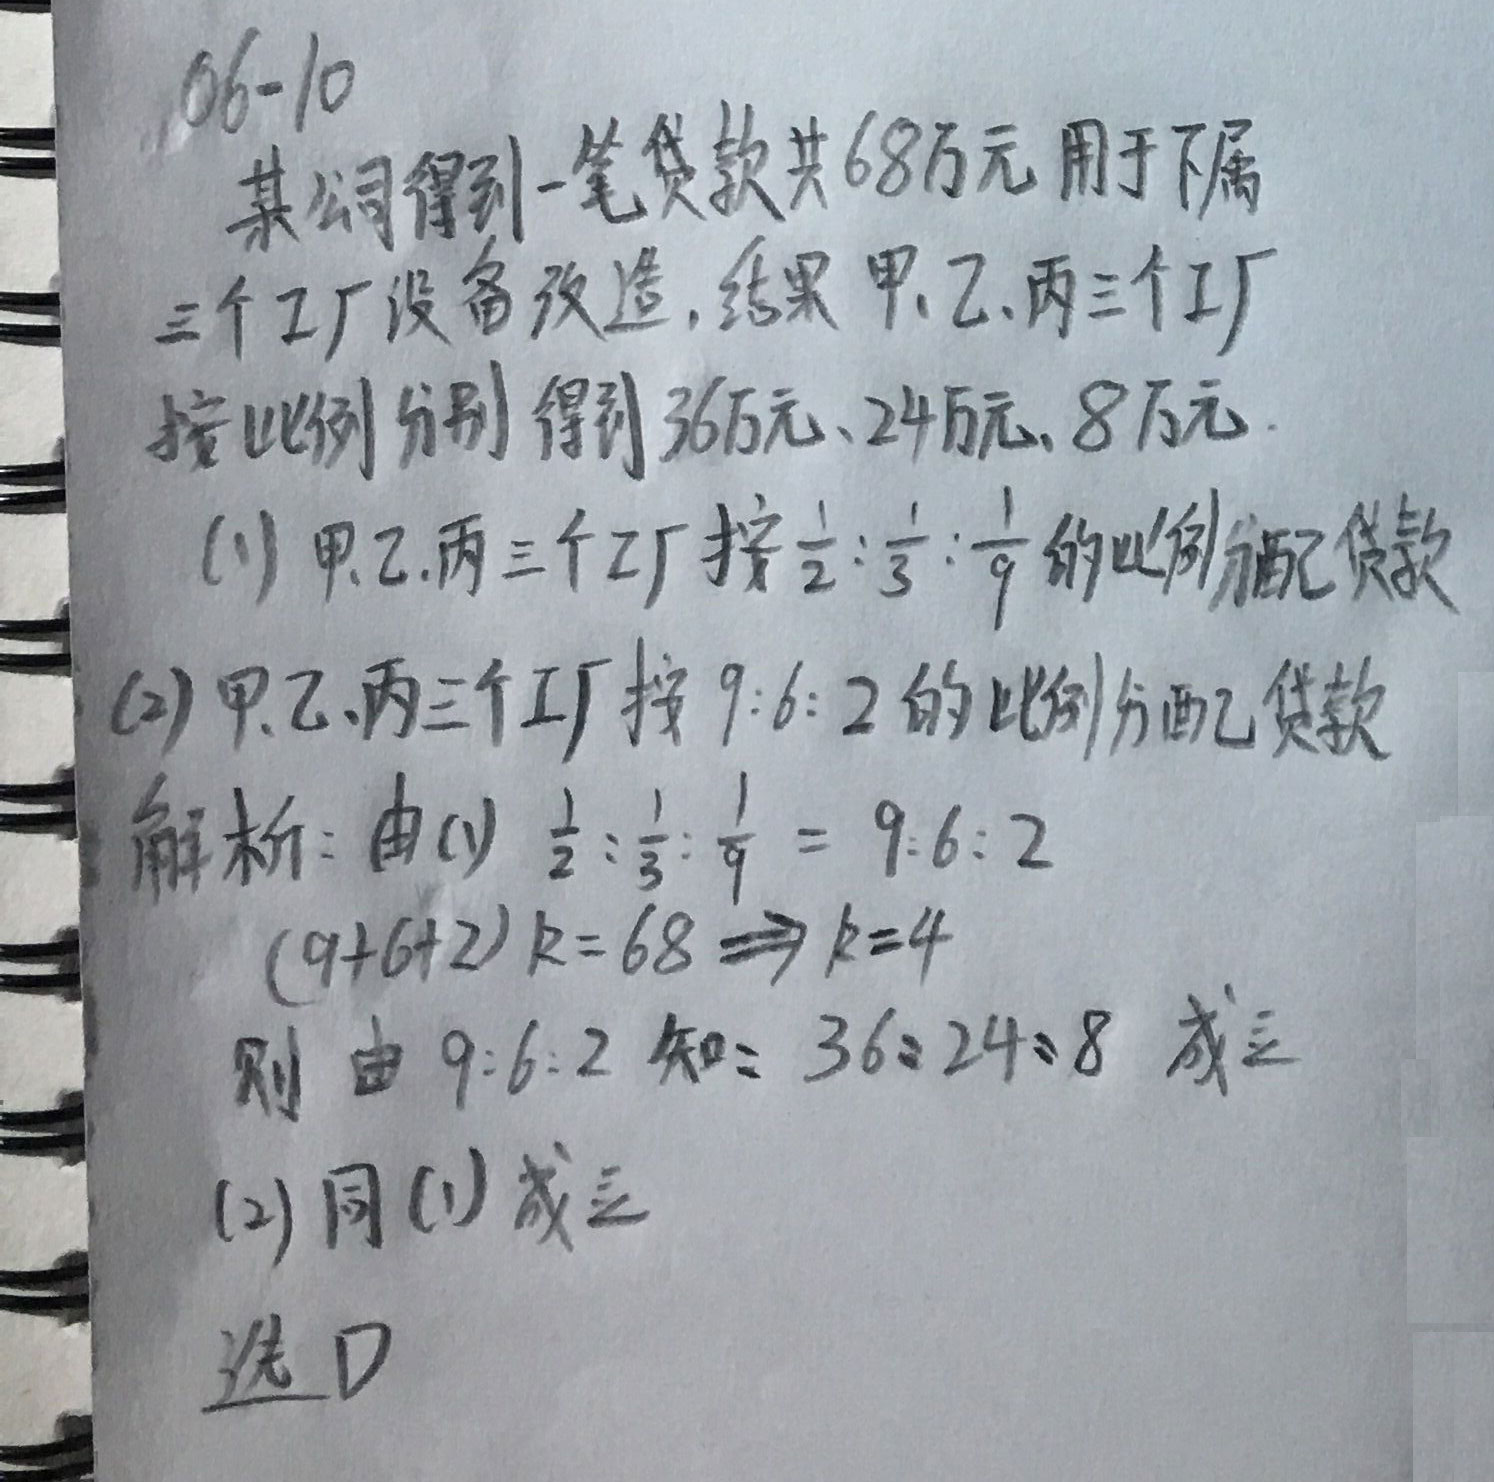 06-10
某公司得到一笔贷款共68万元用于下属
三个工厂设备改造,结果甲、乙、丙三个工厂
按比例分别得到36万元、24万元、8万元.
(1) 甲、乙、丙三个工厂按1/2:1/3:1/9的比例分配贷款
(2) 甲、乙、丙三个工厂按9:6:2的比例分配贷款
解析:由(1) 1/2:1/3:1/9 = 9:6:2
(9+6+2)k=68⇒k=4
则由9:6:2知:36:24:8 成立
(2)同(1)成立
选D